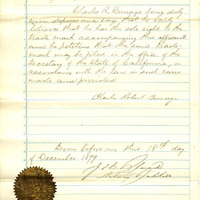 Charles R. Bunage being duly
sworn deposes and says that he verily
believes that he has the sole right to the
trade mark accompanying this affidavit
and he petitions that the same trade
mark may be filed in the office of the
Secretary of the State of California, in
accordance with the law in such cases
made and provided.
Charles Robert
Sworn before me this 18th day
of December 1879